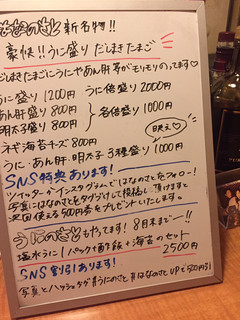 はなのさと 新名物!!
豪快!!うに盛り だしまきたまご
だしまきたまごにうにやあん肝等がモリモリのってます♡
うに盛り 1200円 うに倍盛り 2000円
あん肝盛り 800円 各倍盛り 1000円
明太子盛り 800円
ネギ海苔チーズ 800円 映え♡
うに・あん肝・明太子 3種盛り 1000円
SNS特典あります!
ツイッターかインスタグラムではなのさとをフォロー!
写真にはなのさとをタグづけして投稿し頂けますと
次回使える500円券をプレゼントいたします。
うにのさともやってます! 8月末まで--!!
塩水うに1パックと酢飯と海苔のセット
2500円
SNS割引あります!
写真とハッシュタグ #うにのさと #はなのさと UPで500円引